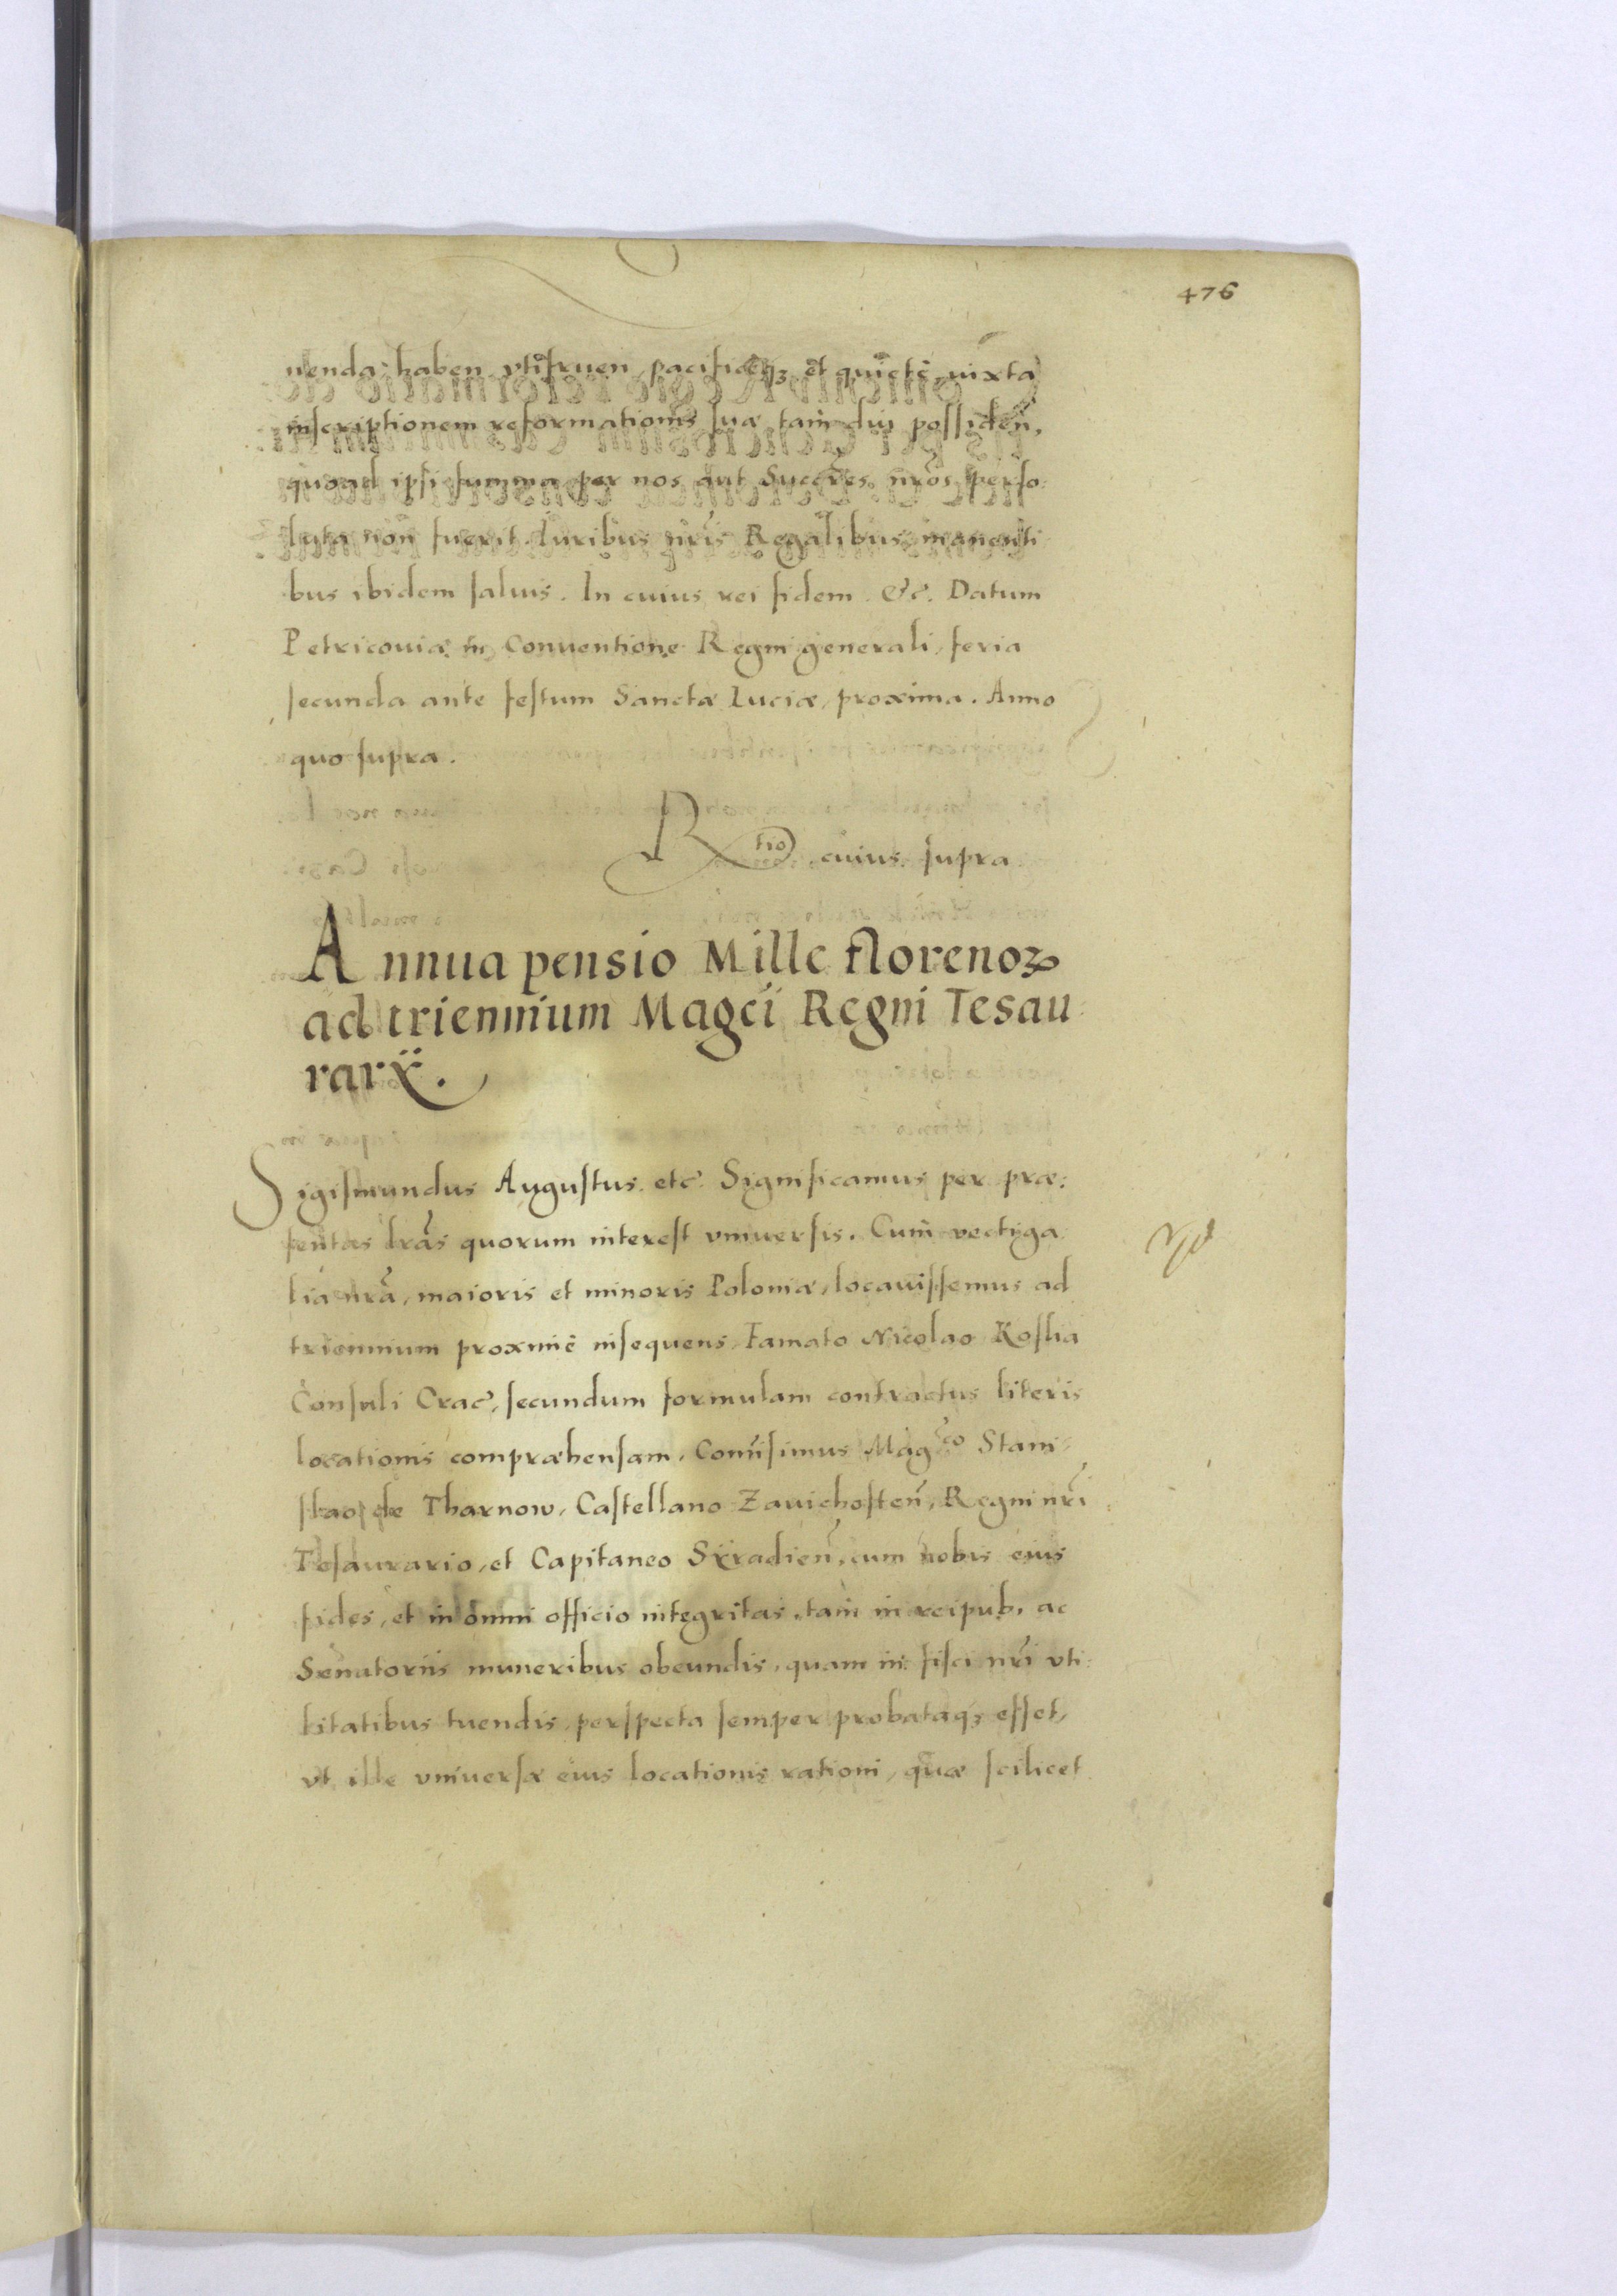 476
nenda: haben. vtifruen, pacificeq3 et quiete, iuxta
inscriptionem reformationis suæ tam diu possiden̄,
quoad ipsi summa per nos aut Succr̄es nr̄os perso:
luta non fuerit. Iuribus nr̄is Regalibus manenti
bus ibidem saluis. In cuius rei fidem &c. Datum
Petricouiæ in Conuentione Regni generali, feria
secunda ante festum Sanctæ Luciæ, proxima. Anno
quo supra.
Rtio cuius supra
Annua pensio Mille florenoꝝ
ad triennium Magci Regni Tesau
rarÿ.
Sigismundus Augustus etc. Significamus per præ:
sentas lr̄as quorum interest vniuersis. Cum vectiga
lia nr̄a, maioris et minoris Poloniæ, locauissemus ad
triennium proxime insequens, Famato Nicolao Koslia
Consuli Crac, secundum formulam contractus literis
locationis compræhensam, Comisimus Magco Stani
slao de Tharnow, Castellano Zauichosten̄, Regni nr̄i
Tesaurario, et Capitaneo Sÿradien̄, cum nobis eius
fides, et in omni officio integritas, tam in reipub. ac
Senatoriis muneribus obeundis, quam in fisci nr̄i vti
litatibus tuendis, perspecta semper probataq3 esset,
vt ille vniuersæ eius locationis rationi, quæ scilicet